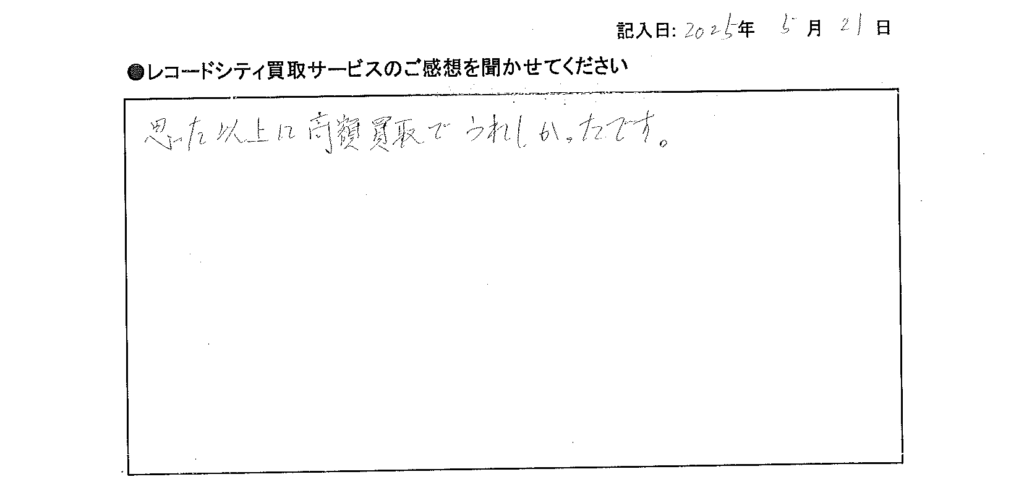 記入日: 2025年 5月 21日
●レコードシティ買取サービスのご感想を聞かせてください
思った以上に高額買取でうれしかったです。